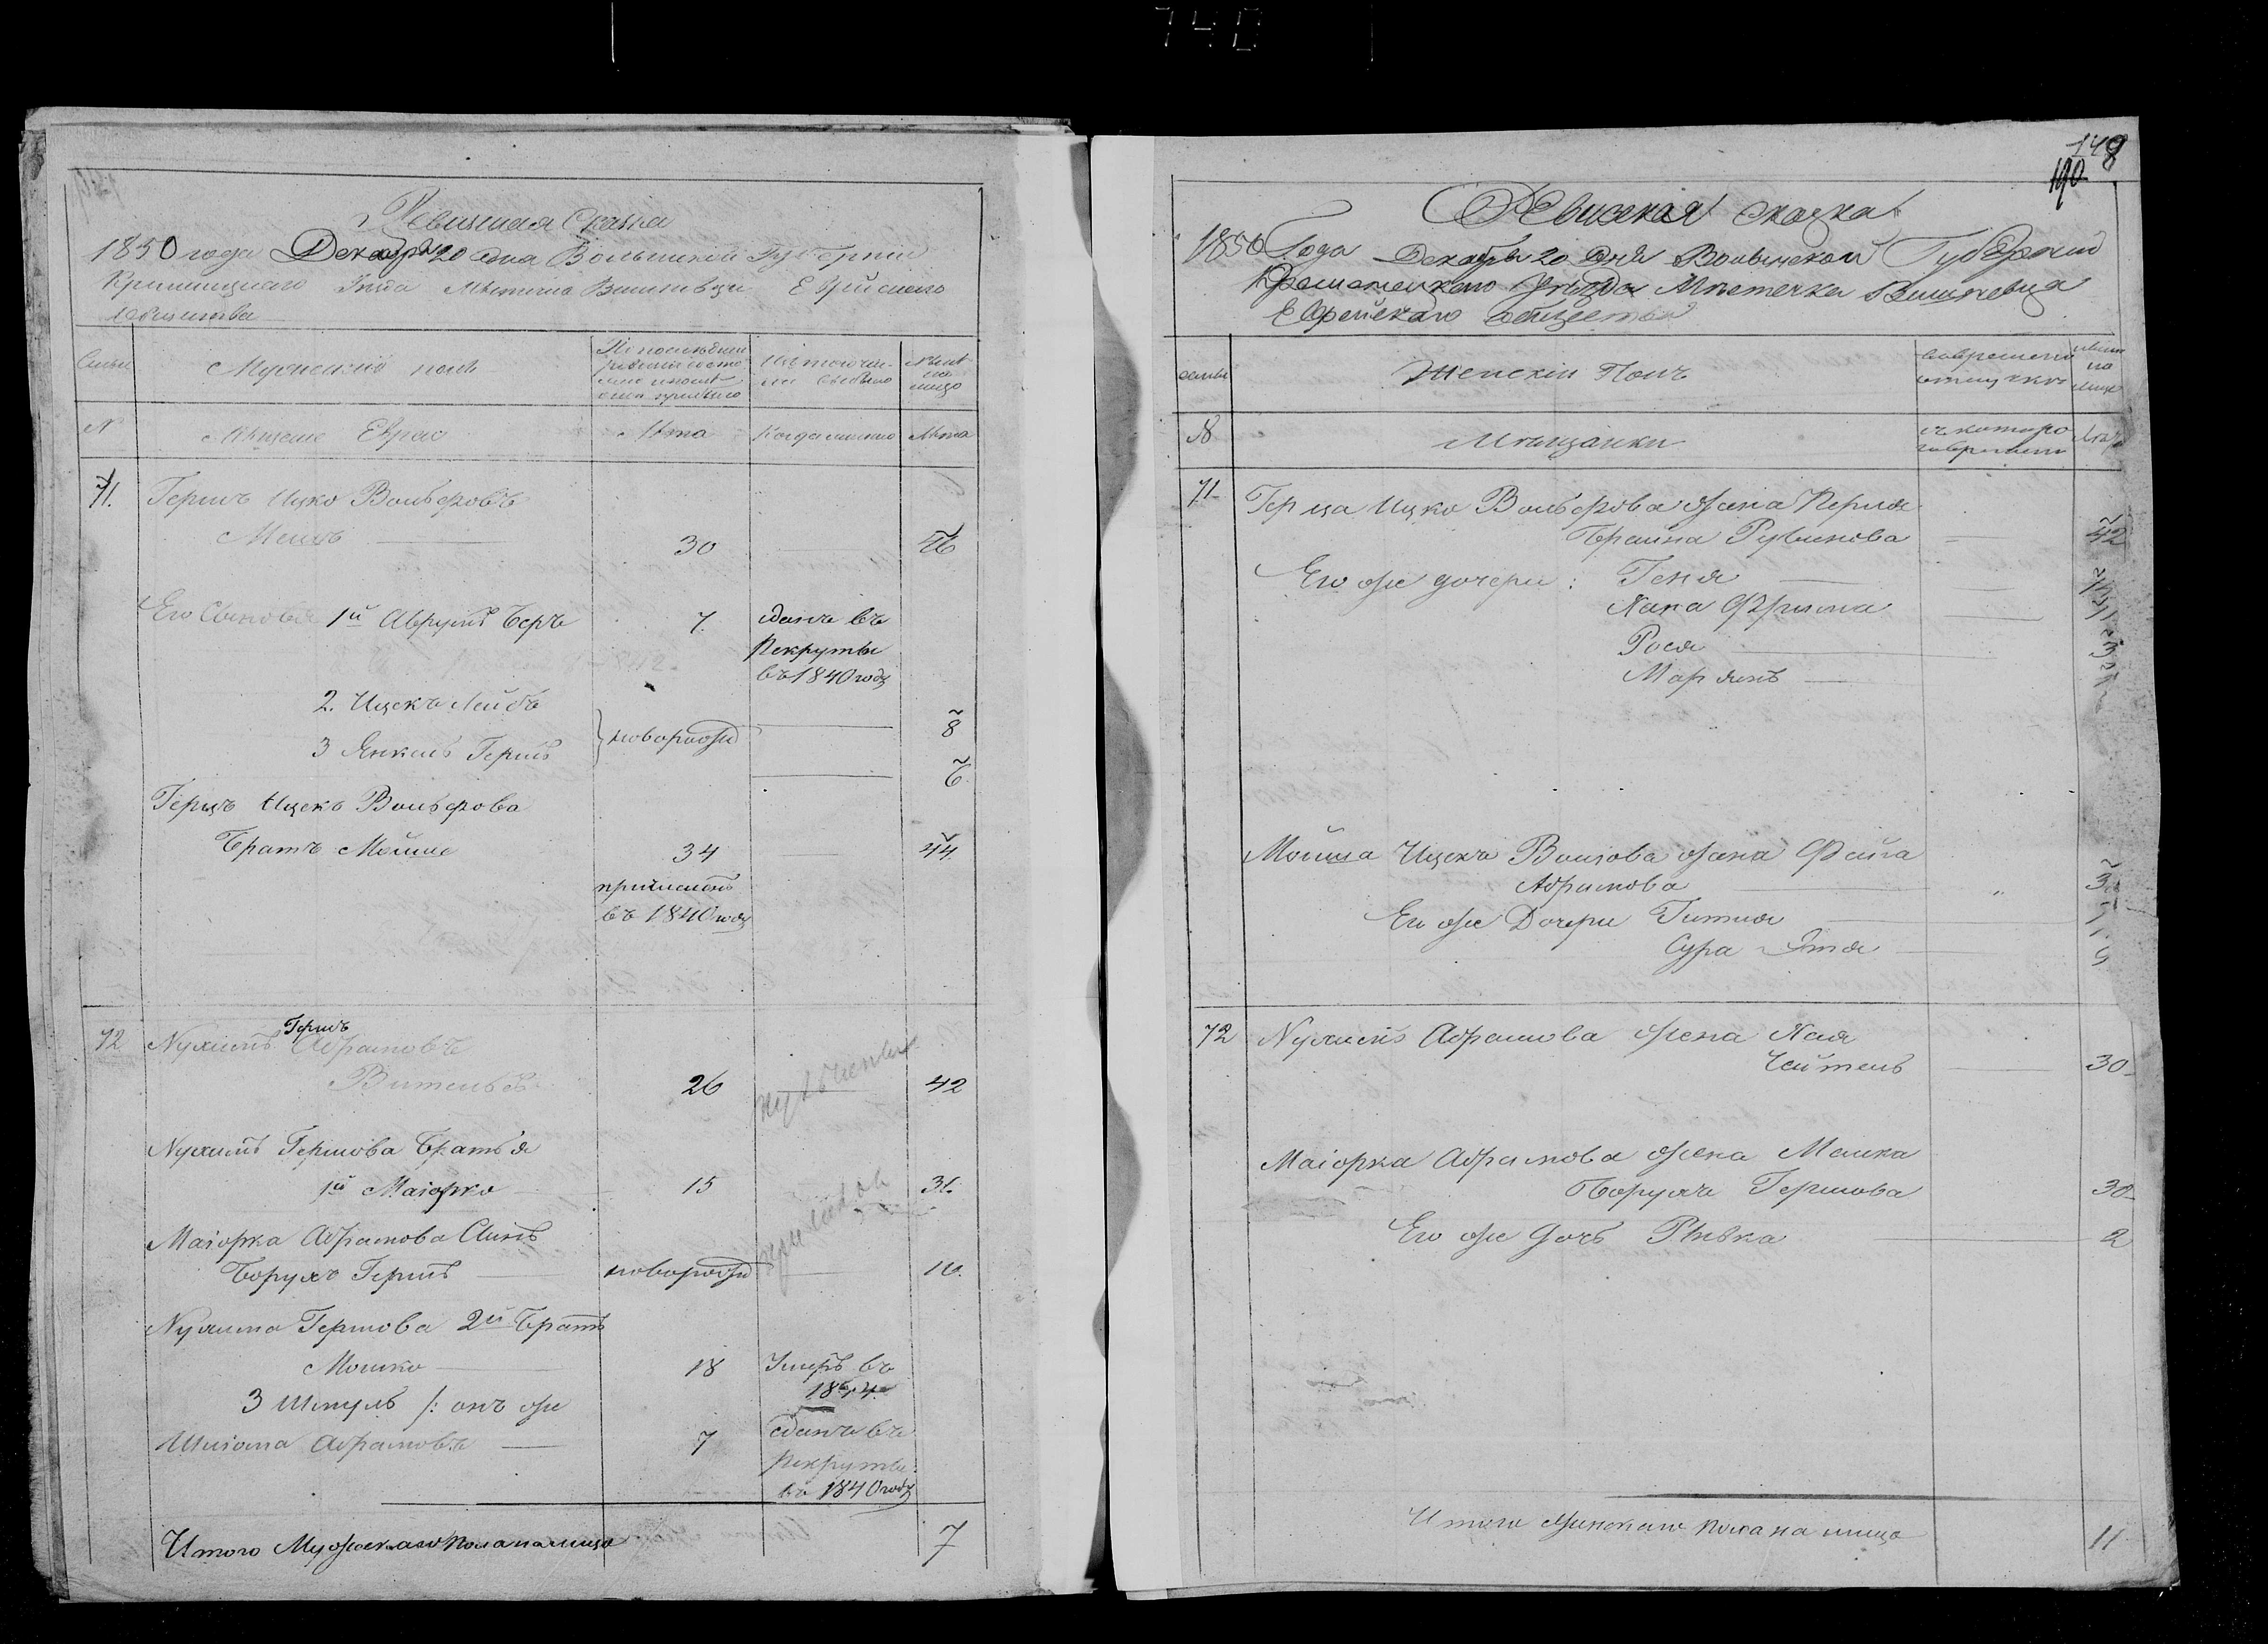 740
Ревизская Сказка
1850 года Декабря 20 дня Волынской Губернии
Кременецкаго Уезда Местечка Вишневца Еврейскаго
общества
Семьи
Мужеский полъ
По последней ревизии состояло и после оной прибыло
Изъ того числа выбыло
Ныне на лицо
N
Мещане Евреи
Лета
Когда именно
Лета
71.
Герцъ Ицко Вольфовъ
30
46
Его Сыновья 1й Аврумъ Беръ
7.
сданъ въ
Рекруты
въ 1840 году
2. Ицекъ Лейбъ
новорожд
8
3 Янкель Гершъ
6.
Герцъ Ицекъ Вольфова
Братъ Мойше
34
44
приписанъ
въ 1840 году
72
Гершъ
Нухимъ Абрамовъ
26
42
Нухимъ Гершова Братья
1й Маіорко
15
31.
Маіорка Абрамова Сынъ
Борухъ Гершъ
новорожд
10.
Нухима Гершова 2й Братъ
Мошко
18
Умеръ въ
1844
3 Шмуль /: онъ же
Шлiома Абрамовъ
7
сданъ въ
Рекруты
въ 1840 году
Итого Мужескаго пола на лицо
7
148
190
Ревизская сказка
1850 Года Декабря 20 Дня Волынской Губернии
Кременецкаго Уезда Местечка Вишневца
Еврейскаго общества
семьи
Женскiй Полъ
во временной отлучке
ныне на лицо
N
Мещанки
съ котораго времени
Лета
71
Герца Ицко Вольфова жена Перля
Брайна Рувинова
42
Его же дочери: Геня
Хана Фрима
Рося
Марьямъ
Мойша Ицекъ Волфова жена Файга
Абрамова
Его же Дочери Гитля
Сура Этя
72
Нухимъ Абрамова жена Хая
Чейтель
30
Маіорка Абрамова жена Малка
Борухъ Гершова
30
Его же дочь Ривка
2
Итого Женскаго пола на лицо
11